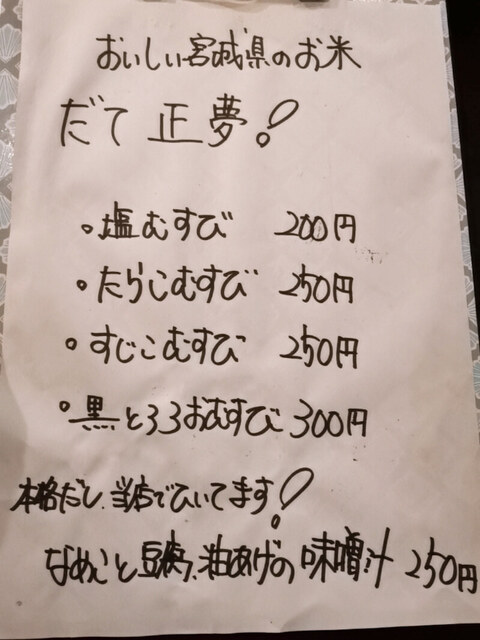 おいしい宮城県のお米
だて 正夢!
・塩むすび 200円
・たらこむすび 250円
・すじこむすび 250円
・黒とろろおむすび 300円
本格だし、当店でひいてます!
なめこと豆腐、油あげの味噌汁 250円